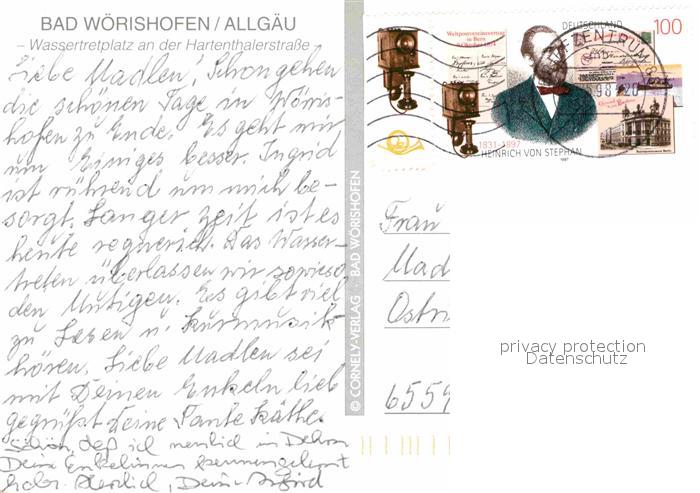 BAD WÖRISHOFEN / ALLGÄU
– Wassertretplatz an der Hartenthalerstraße –
Liebe Madlen! Schon gehen
die schönen Tage in Wöris-
hofen zu Ende. Es geht mir
um Einiges besser. Ingrid
ist rührend um mich be-
sorgt. Langer Zeit ist es
heute regnerich. Das Wasser-
treten überlassen wir sowieso
den Mutigen. Es gibt viel
zu Lesen u. Kurmusik
hören. Liebe Madlen sei
mit Deinen Enkeln lieb
gegrüßt Deine Tante Käthe.
Schön, daß ich neulich in
Deine Enkelinnen kennengelernt
habe. Herzlich, Deine
© CORNELY-VERLAG · BAD WÖRISHOFEN
Weltpostvereinsvertrag
in Bern
9. Oktober 1874
DEUTSCHLAND
100
1831-1897
HEINRICH VON STEPHAN
1997
Frau
Mad
Ostri
6559
privacy protection
Datenschutz